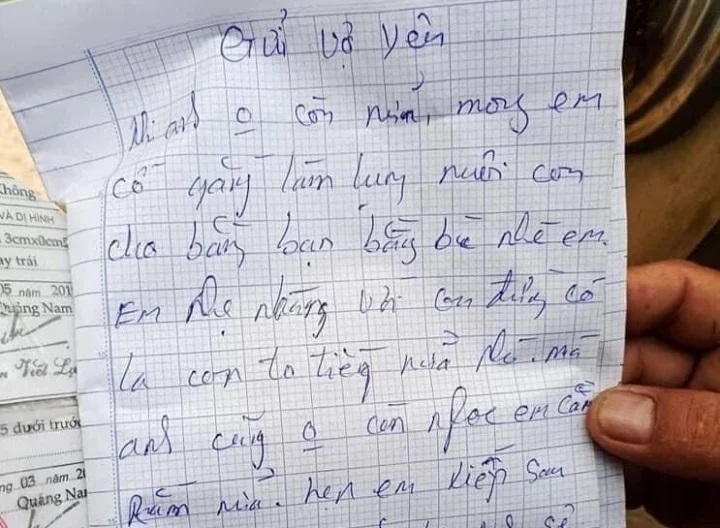 Gửi vợ yên
Khi anh o còn nữa, mong em
cố gắng làm lụng nuôi con
cho bằng bạn bằng bè nhé em.
Em nhẹ nhàng với con đừng có
la con to tiếng nữa nhé. mà
anh cũng o còn nghe em cằn
nhằn nữa. hẹn em kiếp sau
không
VÀ DỊ HÌNH
3cmx0cm5
ay trái
05 năm 201
Quảng Nam
Viết
5 dưới trước
ng 03 năm 2
Quảng Na